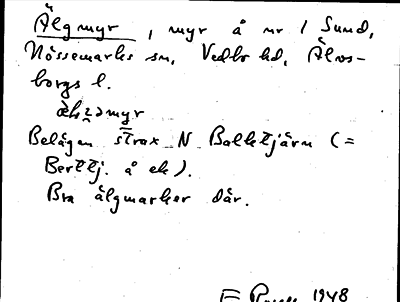 Älgmyr, myr å nr 1 Sund,
Nössemarks sn, Vedbo hd, Älvs-
borgs l.
Belägen strax N Balktjärn (=
Berttj. å ek).
Bra älgmarker där.
1948